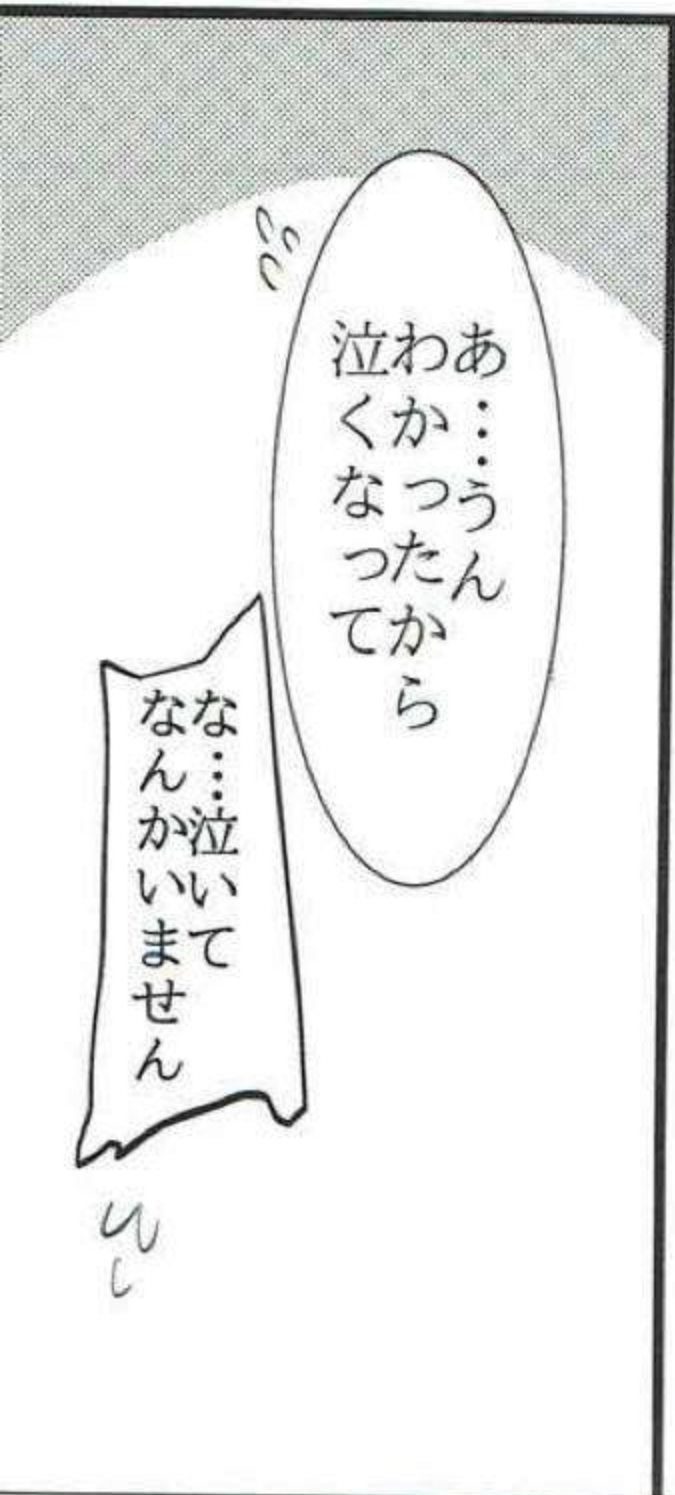 あ…うん
わかったから
泣くなって
な…泣いて
なんかいません